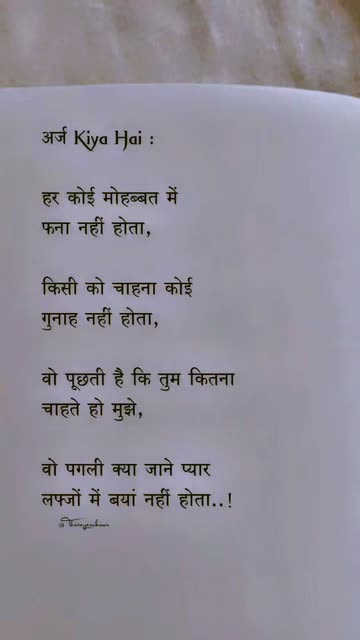 अर्ज Kiya Hai :
हर कोई मोहब्बत में
फना नहीं होता,
किसी को चाहना कोई
गुनाह नहीं होता,
वो पूछती है कि तुम कितना
चाहते हो मुझे,
वो पगली क्या जाने प्यार
लफ्जों में बयां नहीं होता..!